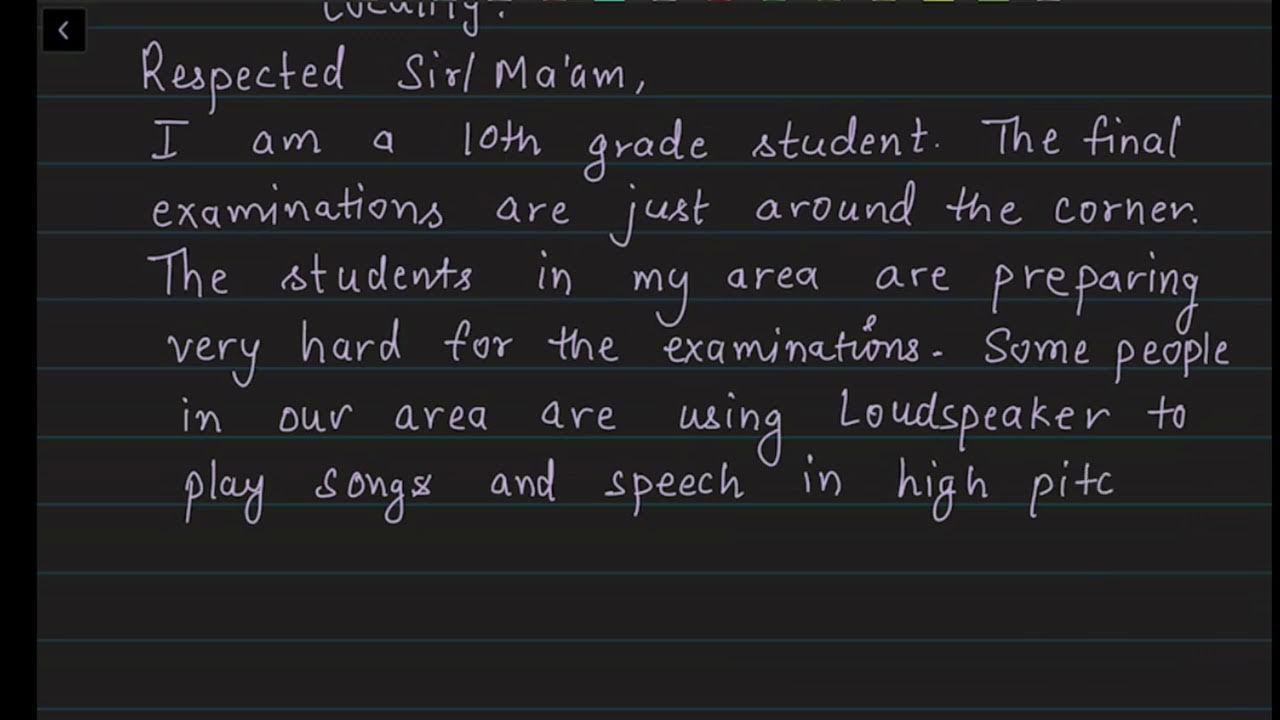 locality.
Respected Sir/ Ma'am,
I am a 10th grade student. The final
examinations are just around the corner.
The students in my area are preparing
very hard for the examinations. Some people
in our area are using Loudspeaker to
play songs and speech in high pitc